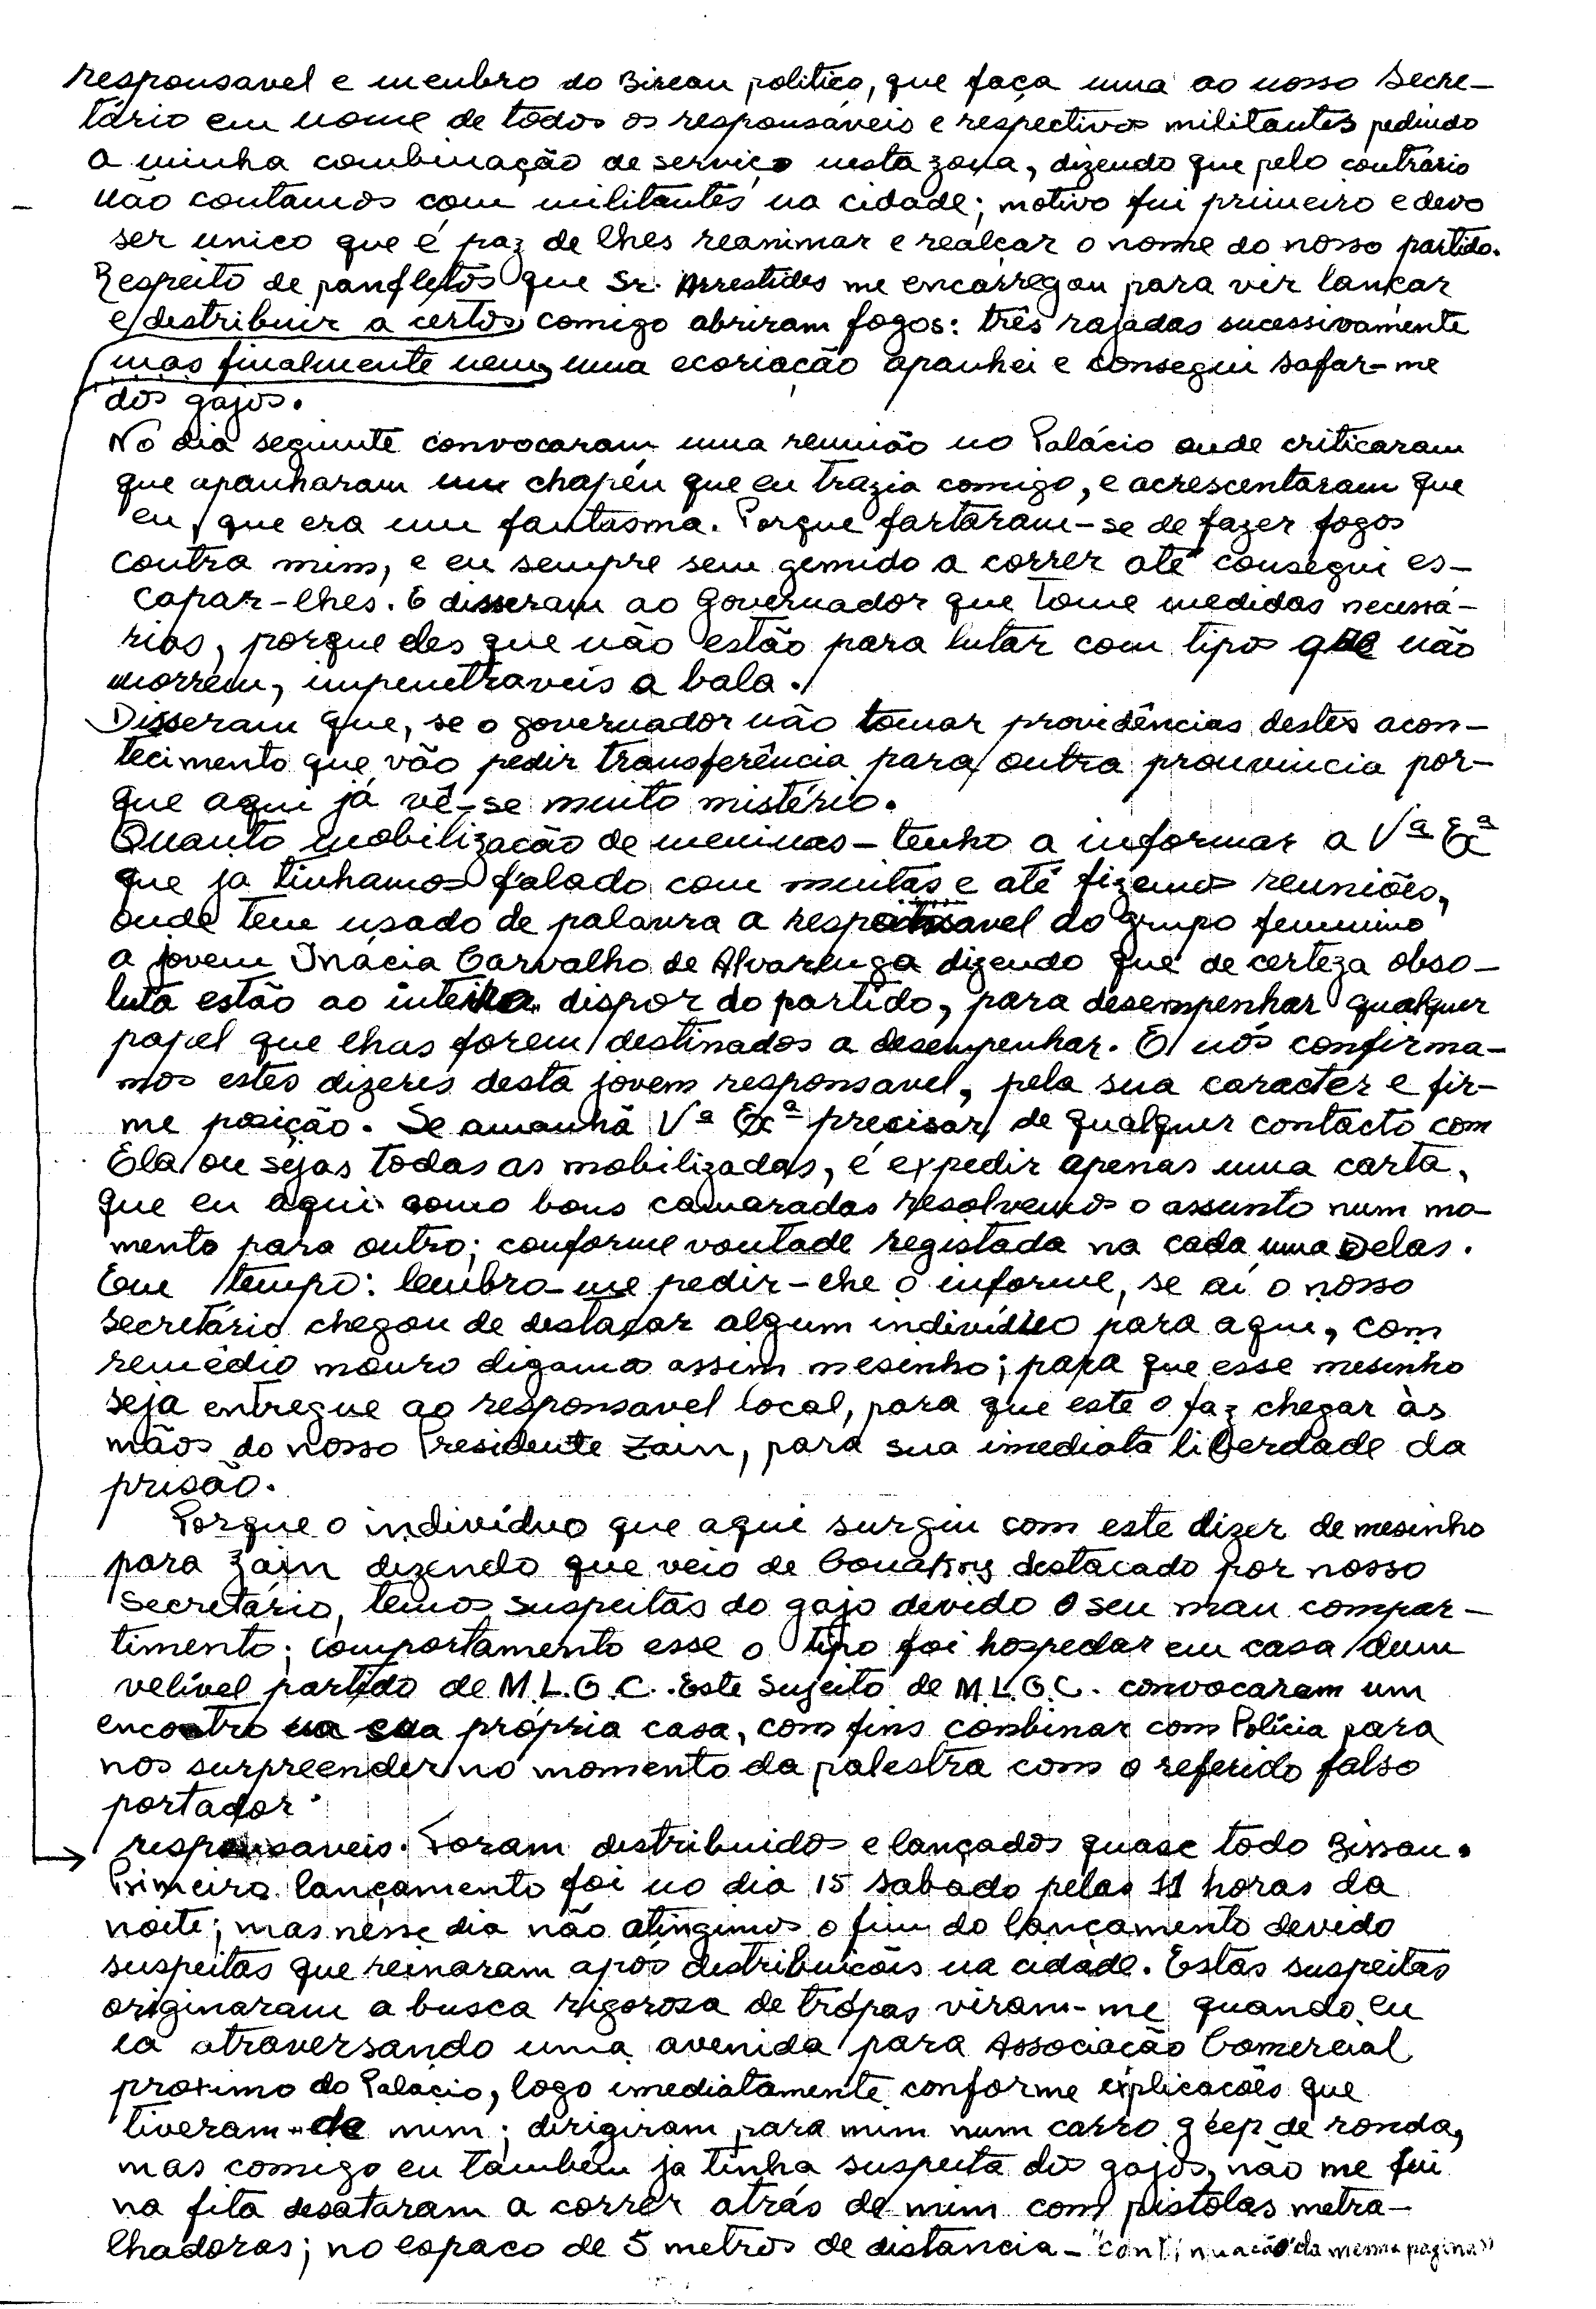 responsavel e menbro do Bireau politico, que faça uma ao nosso Secre-
tário em nome de todos os responsáveis e respectivos militantes pedindo
a minha combinação de serviço nesta zona, dizendo que pelo contrário
não contamos com militantes na cidade; motivo fui primeiro e devo
ser unico que é paz de lhes reanimar e realçar o nome do nosso partido.
Respeito de panfletos que Sr. Arrestides me encarregou para vir lançar
e distribuir a certos comigo abriram fogos: três rajadas sucessivamente
mas finalmente nem uma ecoriação apanhei e consegui safar-me
dos gajos.
No dia seguinte convocaram uma reunião no Palácio onde criticaram
que apanharam um chapéu que eu trazia comigo, e acrescentaram que
eu, que era um fantasma. Porque fartaram-se de fazer fogos
contra mim, e eu sempre sem gemido a correr até consegui es-
capar-lhes. E disseram ao Governador que tome medidas necessá-
rias, porque eles que não estão para lutar com tipos que não
morrem, impenetraveis a bala.
Disseram que, se o governador não tomar providências destes acon-
tecimento que vão pedir transferência para outra prouvincia por-
que aqui já vê-se muito mistério.
Quanto mobilização de meninas - tenho a informar a Vª Exª
que ja tinhamos falado com muitas e até fizemos reuniões,
onde tem usado de palavra a responsavel do grupo feminino
a jovem Inácia Carvalho de Alvarenga dizendo que de certeza obso-
luta estão ao inteira dispor do partido, para desempenhar qualquer
papel que lhas forem destinados a desempenhar. E nós confirma-
mos estes dizeres desta jovem responsavel, pela sua caracter e fir-
me posição. Se amanhã Vª Exª precisar de qualquer contacto com
Ela ou sejas todas as mobilizadas, é expedir apenas uma carta,
que eu aqui como bons camaradas resolvemos o assunto num mo-
mento para outro; conforme vontade registada na cada uma delas.
Em tempo: lembro-me pedir-lhe o informe, se aí o nosso
Secretário chegou de destacar algum indivíduo para aqui, com
remédio mouro digamo assim mesinho; para que esse mesinho
seja entregue ao responsavel local, para que este o faz chegar às
mãos do nosso Presidente Zain, para sua imediata liberdade da
prisão.
Porque o indivíduo que aqui surgiu com este dizer de mesinho
para Zain dizendo que veio de Conakry destacado por nosso
Secretário, temos suspeitas do gajo devido o seu mau compar-
timento; comportamento esse o tipo foi hospedar em casa dum
velível partido de M.L.G.C. Este sujeito de M.L.G.C. convocaram um
encontro na sua própria casa, com fins conbinar com Polícia para
nos surpreender no momento da palestra com o referido falso
portador.
responsaveis. Foram distribuidos e lançados quase todo Bissau.
Primeiro lançamento foi no dia 15 sabado pelas 11 horas da
noite; mas nesse dia não atingimos o fim do lançamento devido
suspeitas que reinaram após distribuicois na cidade. Estas suspeitas
originaram a busca rigorosa de trópas viram-me quando eu
ia atraversando uma avenida para Associação Comercial
proximo do Palacio, logo imediatamente conforme explicacoês que
tiveram de mim; dirigiram para mim num carro géep de ronda,
mas comigo eu também ja tinha suspeita dos gajos, não me fui
na fita desataram a correr atrás de mim com pistolas metra-
lhadoras; no espaco de 5 metros de distancia - "continuacão da mesma pagina"